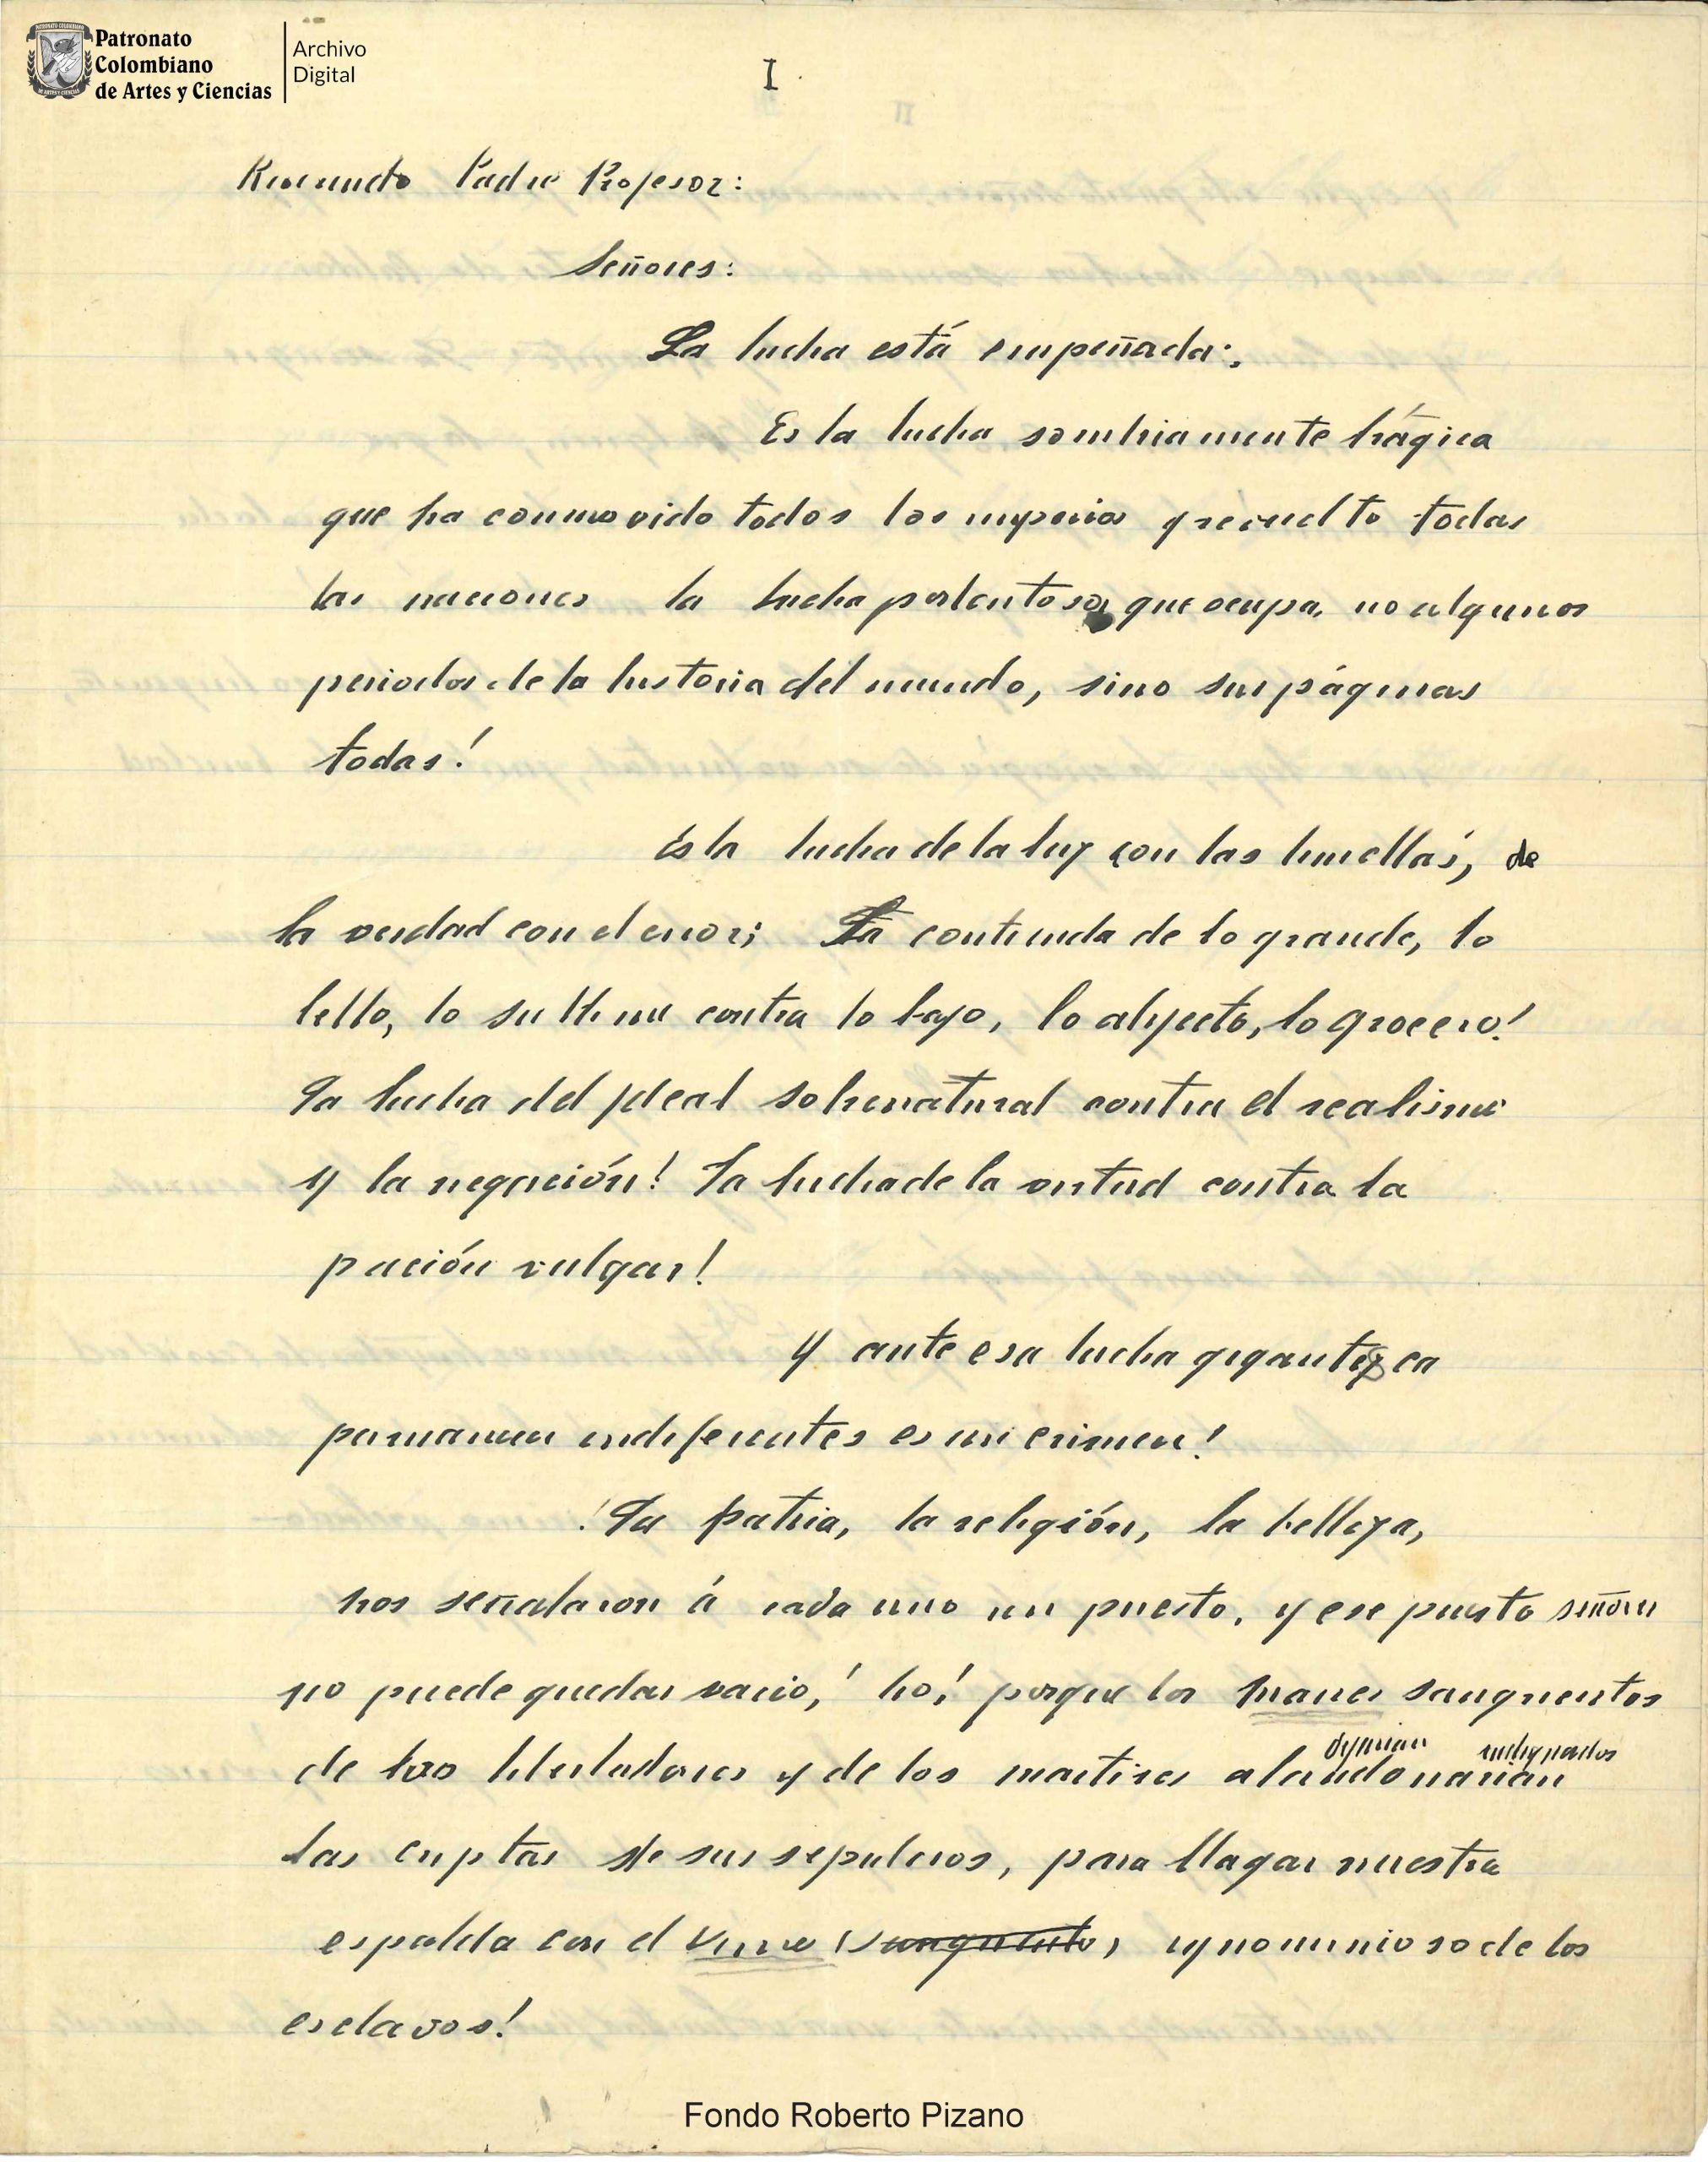 Patronato
Colombiano
de Artes y Ciencias
Archivo
Digital
I.
Reverendo Padre Profesor:
Señores:
La lucha está empeñada:,
Es la lucha sombriamente trágica
que ha conmovido todos los imperios y revuelto todas
las naciones la lucha portentosa que ocupa, no algunos
periodos de la historia del mundo, sino sus páginas
todas!
Es la lucha de la luz con las tinieblas, de
la verdad con el error; La contienda de lo grande, lo
bello, lo sublime contra lo bajo, lo abyecto, lo grocero!
La lucha del ideal sobrenatural contra el realismo
y la negación! La lucha de la virtud contra la
pación vulgar!
Y ante esa lucha gigantesca
permanecer indiferentes es un crimen!
!La patria, la religión, la belleza,
nos señalaron á cada uno un puesto, y ese puesto señores
no puede quedar vacio,! no! porque los manes sangrientos
de los libertadores y de los martires abandonarian
dejarian indignados
las criptas de sus sepulcros, para llagar nuestra
espalda con el sangriento, ignominioso de los
esclavos!
Fondo Roberto Pizano